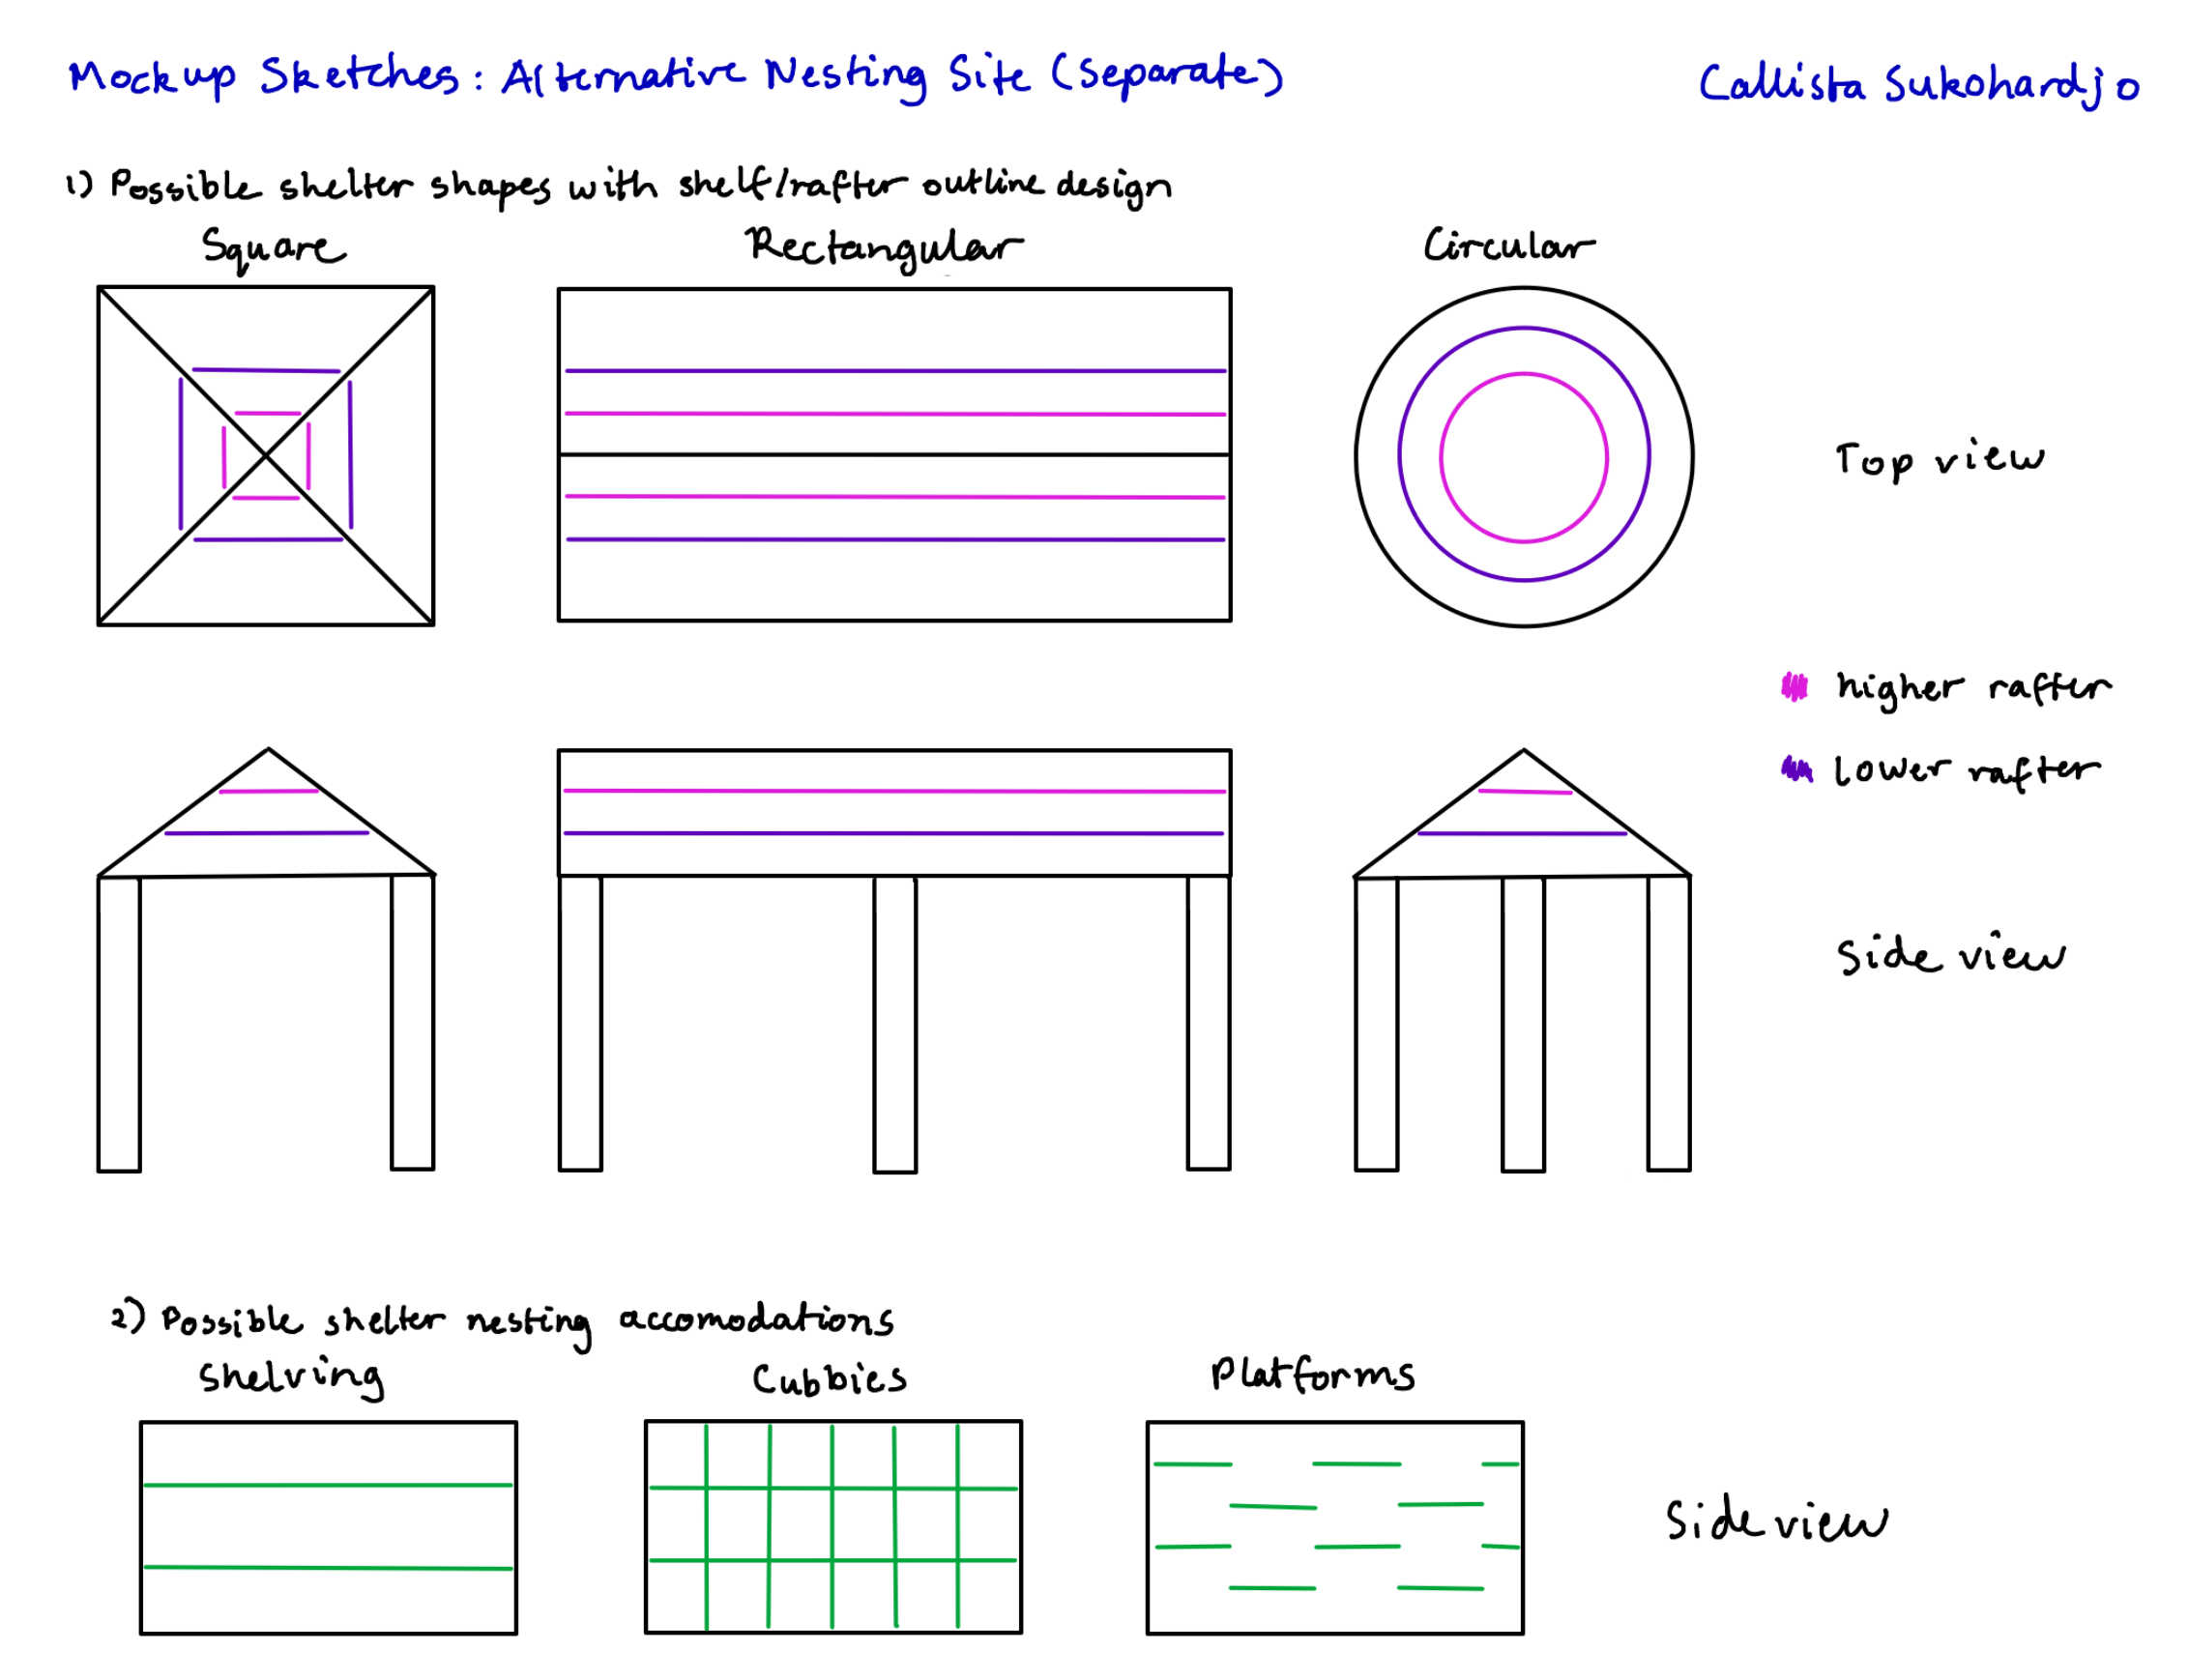 Mockup Sketches: Alternative Nesting Site (Separate)
Callista Sukohardjo
1) Possible shelter shapes with shelf/rafter outline design
Square
Rectangular
Circular
Top view
higher rafter
lower rafter
Side view
2) Possible shelter nesting accomodations
Shelving
Cubbies
Platforms
Side view